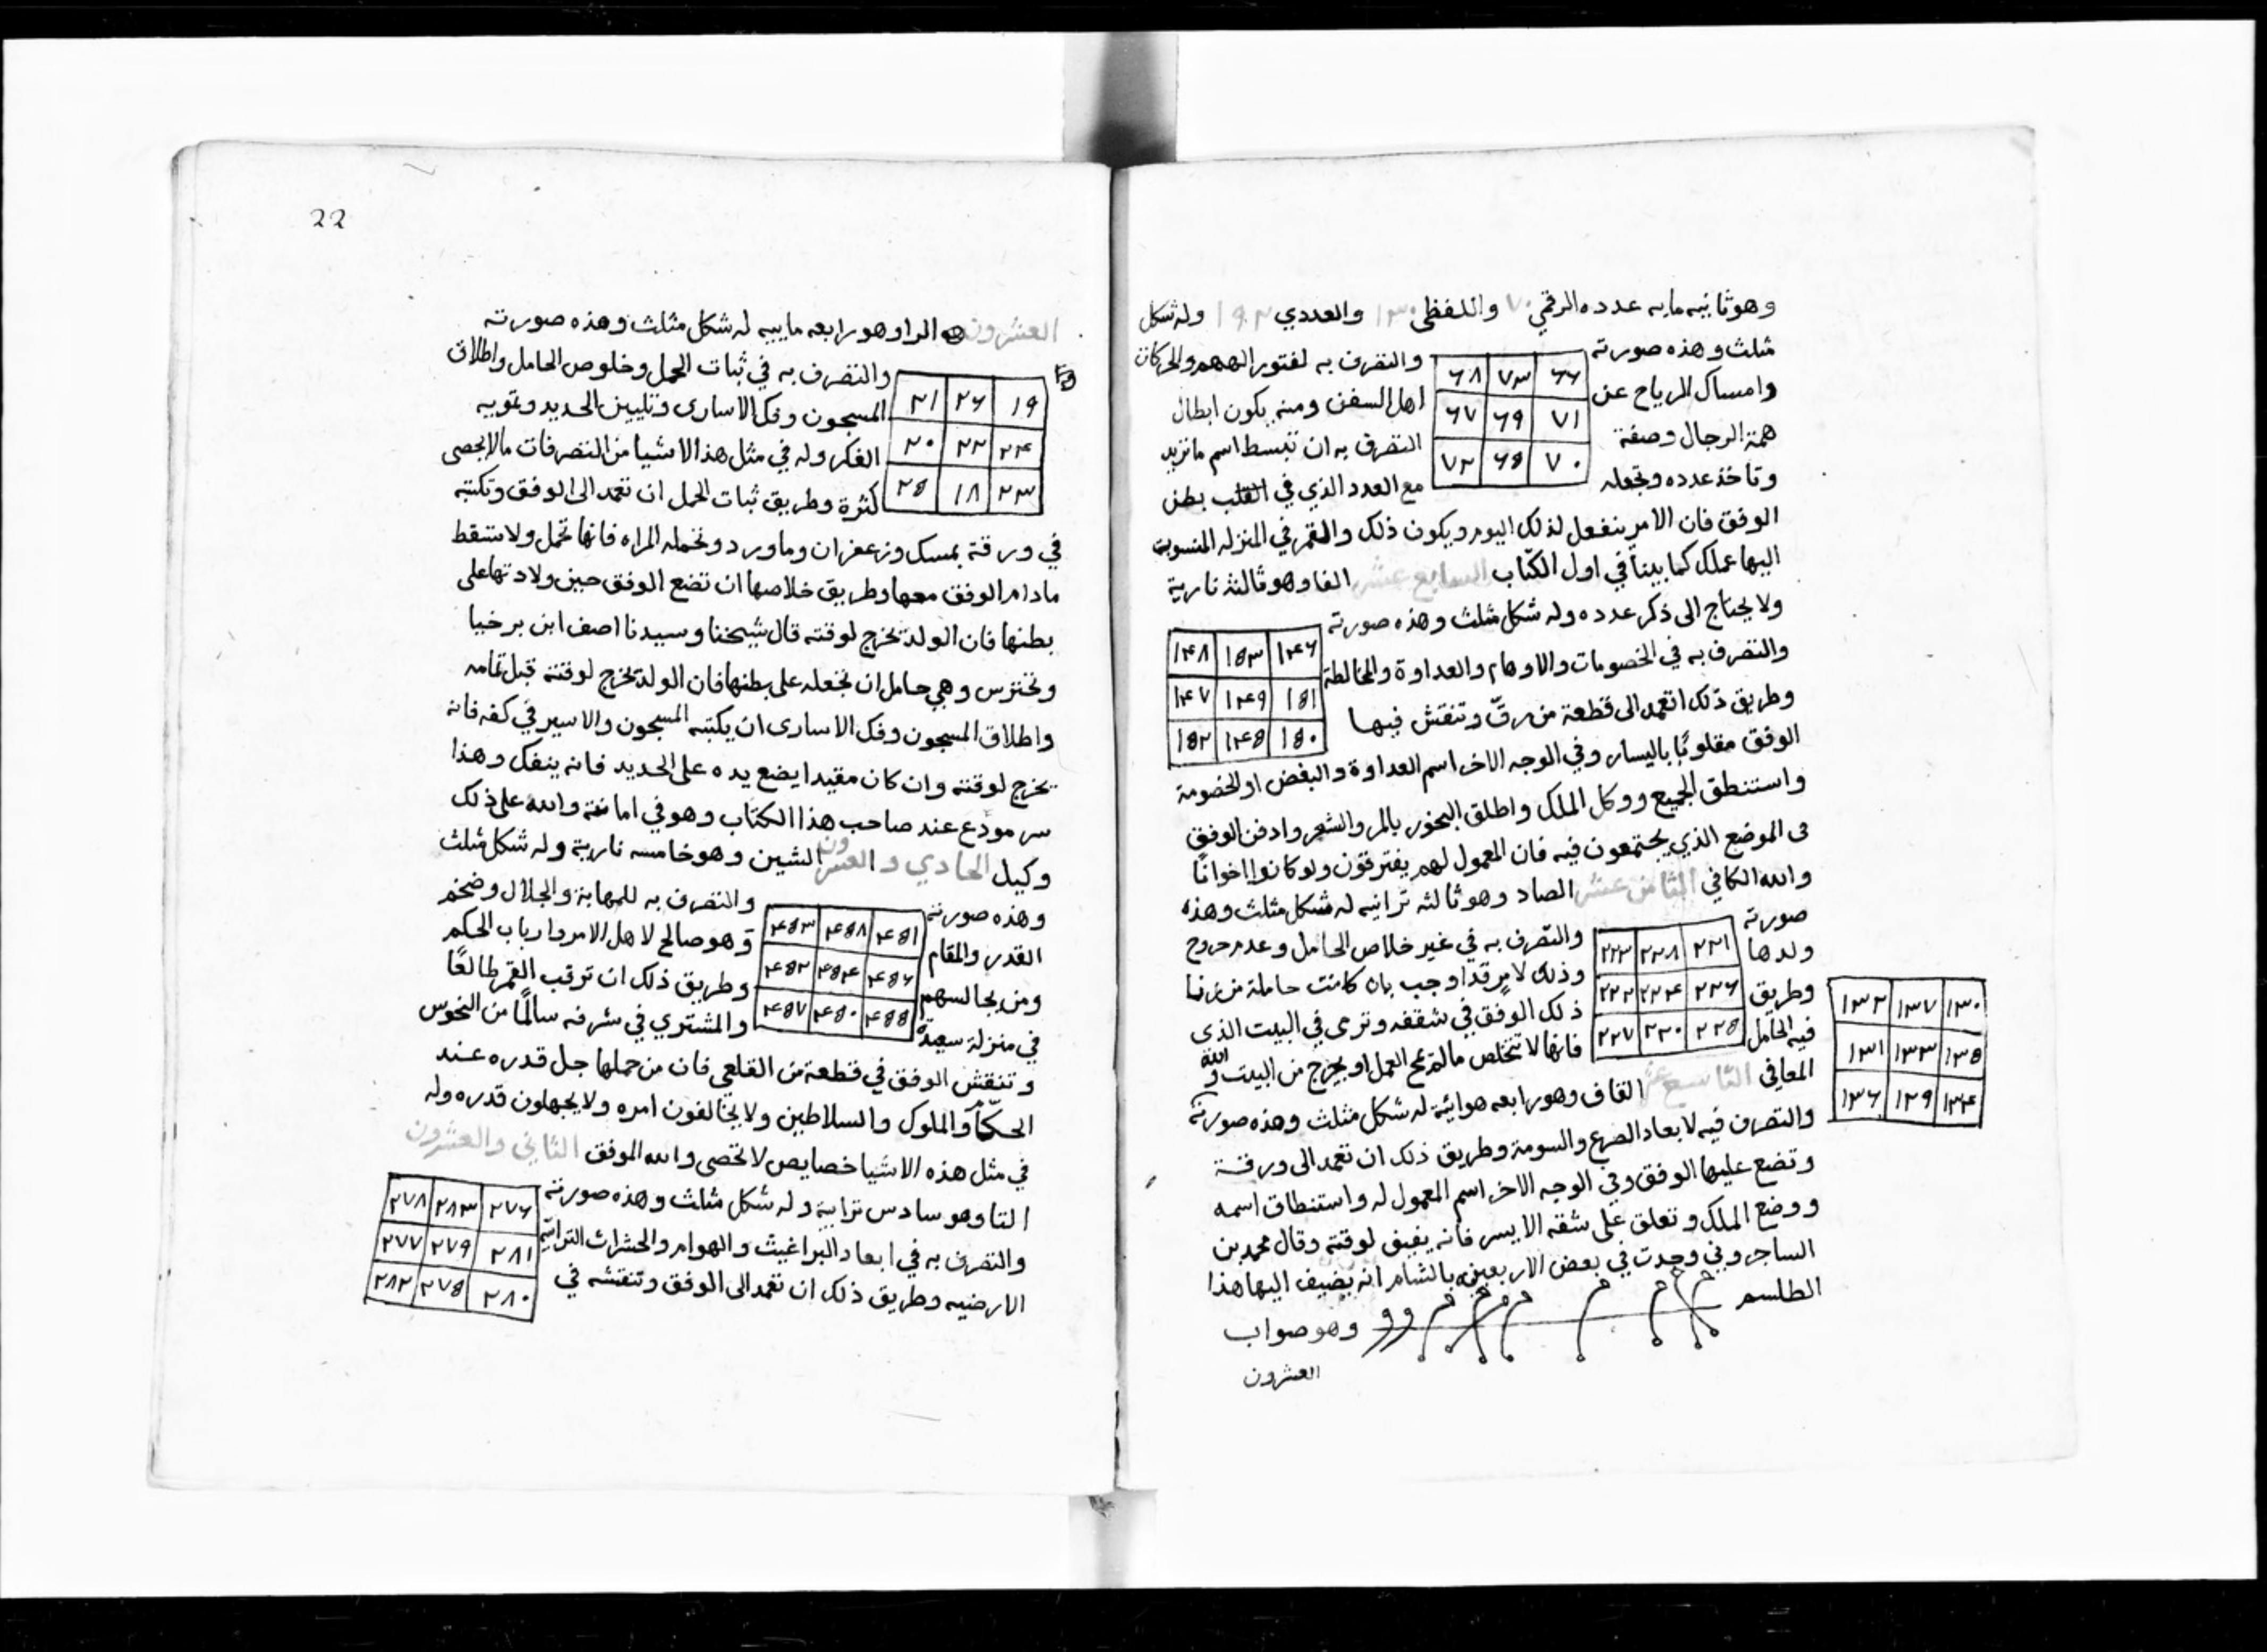 وهو ثانيه مايه عدده الرقمي ٧٠ واللفظي ١٣٠ والعددي ١٩٢ وله شكل
مثلث وهذه صورته
٦٦ ٧٣ ٦٨
٧١ ٦٩ ٦٧
٧٠ ٦٥ ٧٢
والتصرف به لفتور الهمم والحركات
وامساك الرياح عن اهل السفن ومنه يكون ابطال
همة الرجال وصفة التصرف به ان تبسط اسم ما تريد
وتاخذ عدده وتجعله مع العدد الذي في القلب بطن
الوفق فان الامر ينفعل لذلك اليوم ويكون ذلك والقمر في المنزله المنسوبة
اليها عملك كما بينا في اول الكتاب السابع عشر الفا وهو ثالثه نارية
ولا يحتاج الى ذكر عدده وله شكل مثلث وهذه صورته
١٤٦ ١٥٣ ١٤٨
١٥١ ١٤٩ ١٤٧
١٥٠ ١٤٥ ١٥٢
والتصرف به في الخصومات والاوهام والعداوة والمخالطة
وطريق ذلك ا تعمد الى قطعة من رقّ وتنقش فيها
الوفق مقلوبًا باليسار وفي الوجه الاخر اسم العداوة والبغض او الخصومة
واستنطق الجميع ووكل الملك واطلق البخور بالمر والشعر وادفن الوفق
في الموضع الذي يجتمعون فيه فان المعمول لهم يفترقون ولو كانوا اخوانًا
والله الكافي الثامن عشر الصاد وهو ثالثه ترابيه له شكل مثلث وهذه
صورته
٢٢١ ٢٢٨ ٢٢٣
٢٢٦ ٢٢٤ ٢٢٢
٢٢٥ ٢٢٠ ٢٢٧
والتصرف به في غير خلاص الحامل وعدم خروج
ولدها وذلك لامر قد اوجب بان كانت حاملة من زنا
وطريق ذلك الوفق في شقفه وترمى في البيت الذي
فيه الحامل فانها لا تتخلص ما لم تمح العمل او يخرج من البيت والله
المعافي التاسع عشر القاف وهو رابعه هوائية له شكل مثلث وهذه صورته
١٣٠ ١٣٧ ١٣٢
١٣٥ ١٣٣ ١٣١
١٣٤ ١٢٩ ١٣٦
والتصرف فيه لابعاد الصرع والسومة وطريق ذلك ان تعمد الى ورقة
وتضع عليها الوفق وفي الوجه الاخر اسم المعمول له واستنطاق اسمه
ووضع الملك وتعلق على شقه الايسر فانه يفيق لوقته وقال محمد بن
الساجروني وجدت في بعض الاربعين بالشام انه يضيف اليها هذا
الطلسم وهو صواب
العشرون
22
العشرون الرا وهو رابعه ماييه له شكل مثلث وهذه صورته
١٩ ٢٦ ٢١
٢٤ ٢٢ ٢٠
٢٣ ١٨ ٢٥
والتصرف به في ثبات الحمل وخلوص الحامل واطلاق
المسجون وفك الاسارى وتليين الحديد وتمويه
الفكر وله في مثل هذه الاشيا من التصرفات ما لا يحصى
كثرة وطريق ثبات الحمل ان تعمد الى الوفق وتكتبه
في ورقة بمسك وزعفران وماورد وتحمله المراه فانها تحمل ولا تسقط
مادام الوفق معها وطريق خلاصها ان تضع الوفق حين ولادتها على
بطنها فان الولد يخرج لوقته قال شيخنا وسيدنا اصف ابن برخيا
وتحترس وهي حامل ان تجعله على بطنها فان الولد يخرج لوقته قبل تمامه
واطلاق المسجون وفك الاسارى ان يكتبه المسجون والاسير في كفه فانه
يخرج لوقته وان كان مقيدا يضع يده على الحديد فانه ينفك وهذا
سر مودع عند صاحب هذا الكتاب وهو في امانته والله على ذلك
وكيل الحادي والعشرون الشين وهو خامسه نارية وله شكل مثلث
وهذه صورته
٤٥١ ٤٥٨ ٤٥٣
٤٥٦ ٤٥٤ ٤٥٢
٤٥٥ ٤٥٠ ٤٥٧
والتصرف به للمهابة والجلال وضخم
القدر والمقام وهو صالح لاهل الامر وارباب الحكم
ومن يجالسهم وطريق ذلك ان ترقب القمر طالعًا
في منزلة سعيدة والمشتري في شرفه سالمًا من النحوس
وتنقش الوفق في قطعة من القلعي فان من حملها جل قدره عند
الحكّام والملوك والسلاطين ولا يخالفون امره ولا يجهلون قدره وله
في مثل هذه الاشيا خصايص لا تحصى والله الموفق الثاني والعشرون
التا وهو سادس ترابية وله شكل مثلث وهذه صورته
٢٧٦ ٢٨٣ ٢٧٨
٢٨١ ٢٧٩ ٢٧٧
٢٨٠ ٢٧٥ ٢٨٢
والتصرف به في ابعاد البراغيث والهوام والحشرات الترابية
الارضيه وطريق ذلك ان تعمد الى الوفق وتنقشه في